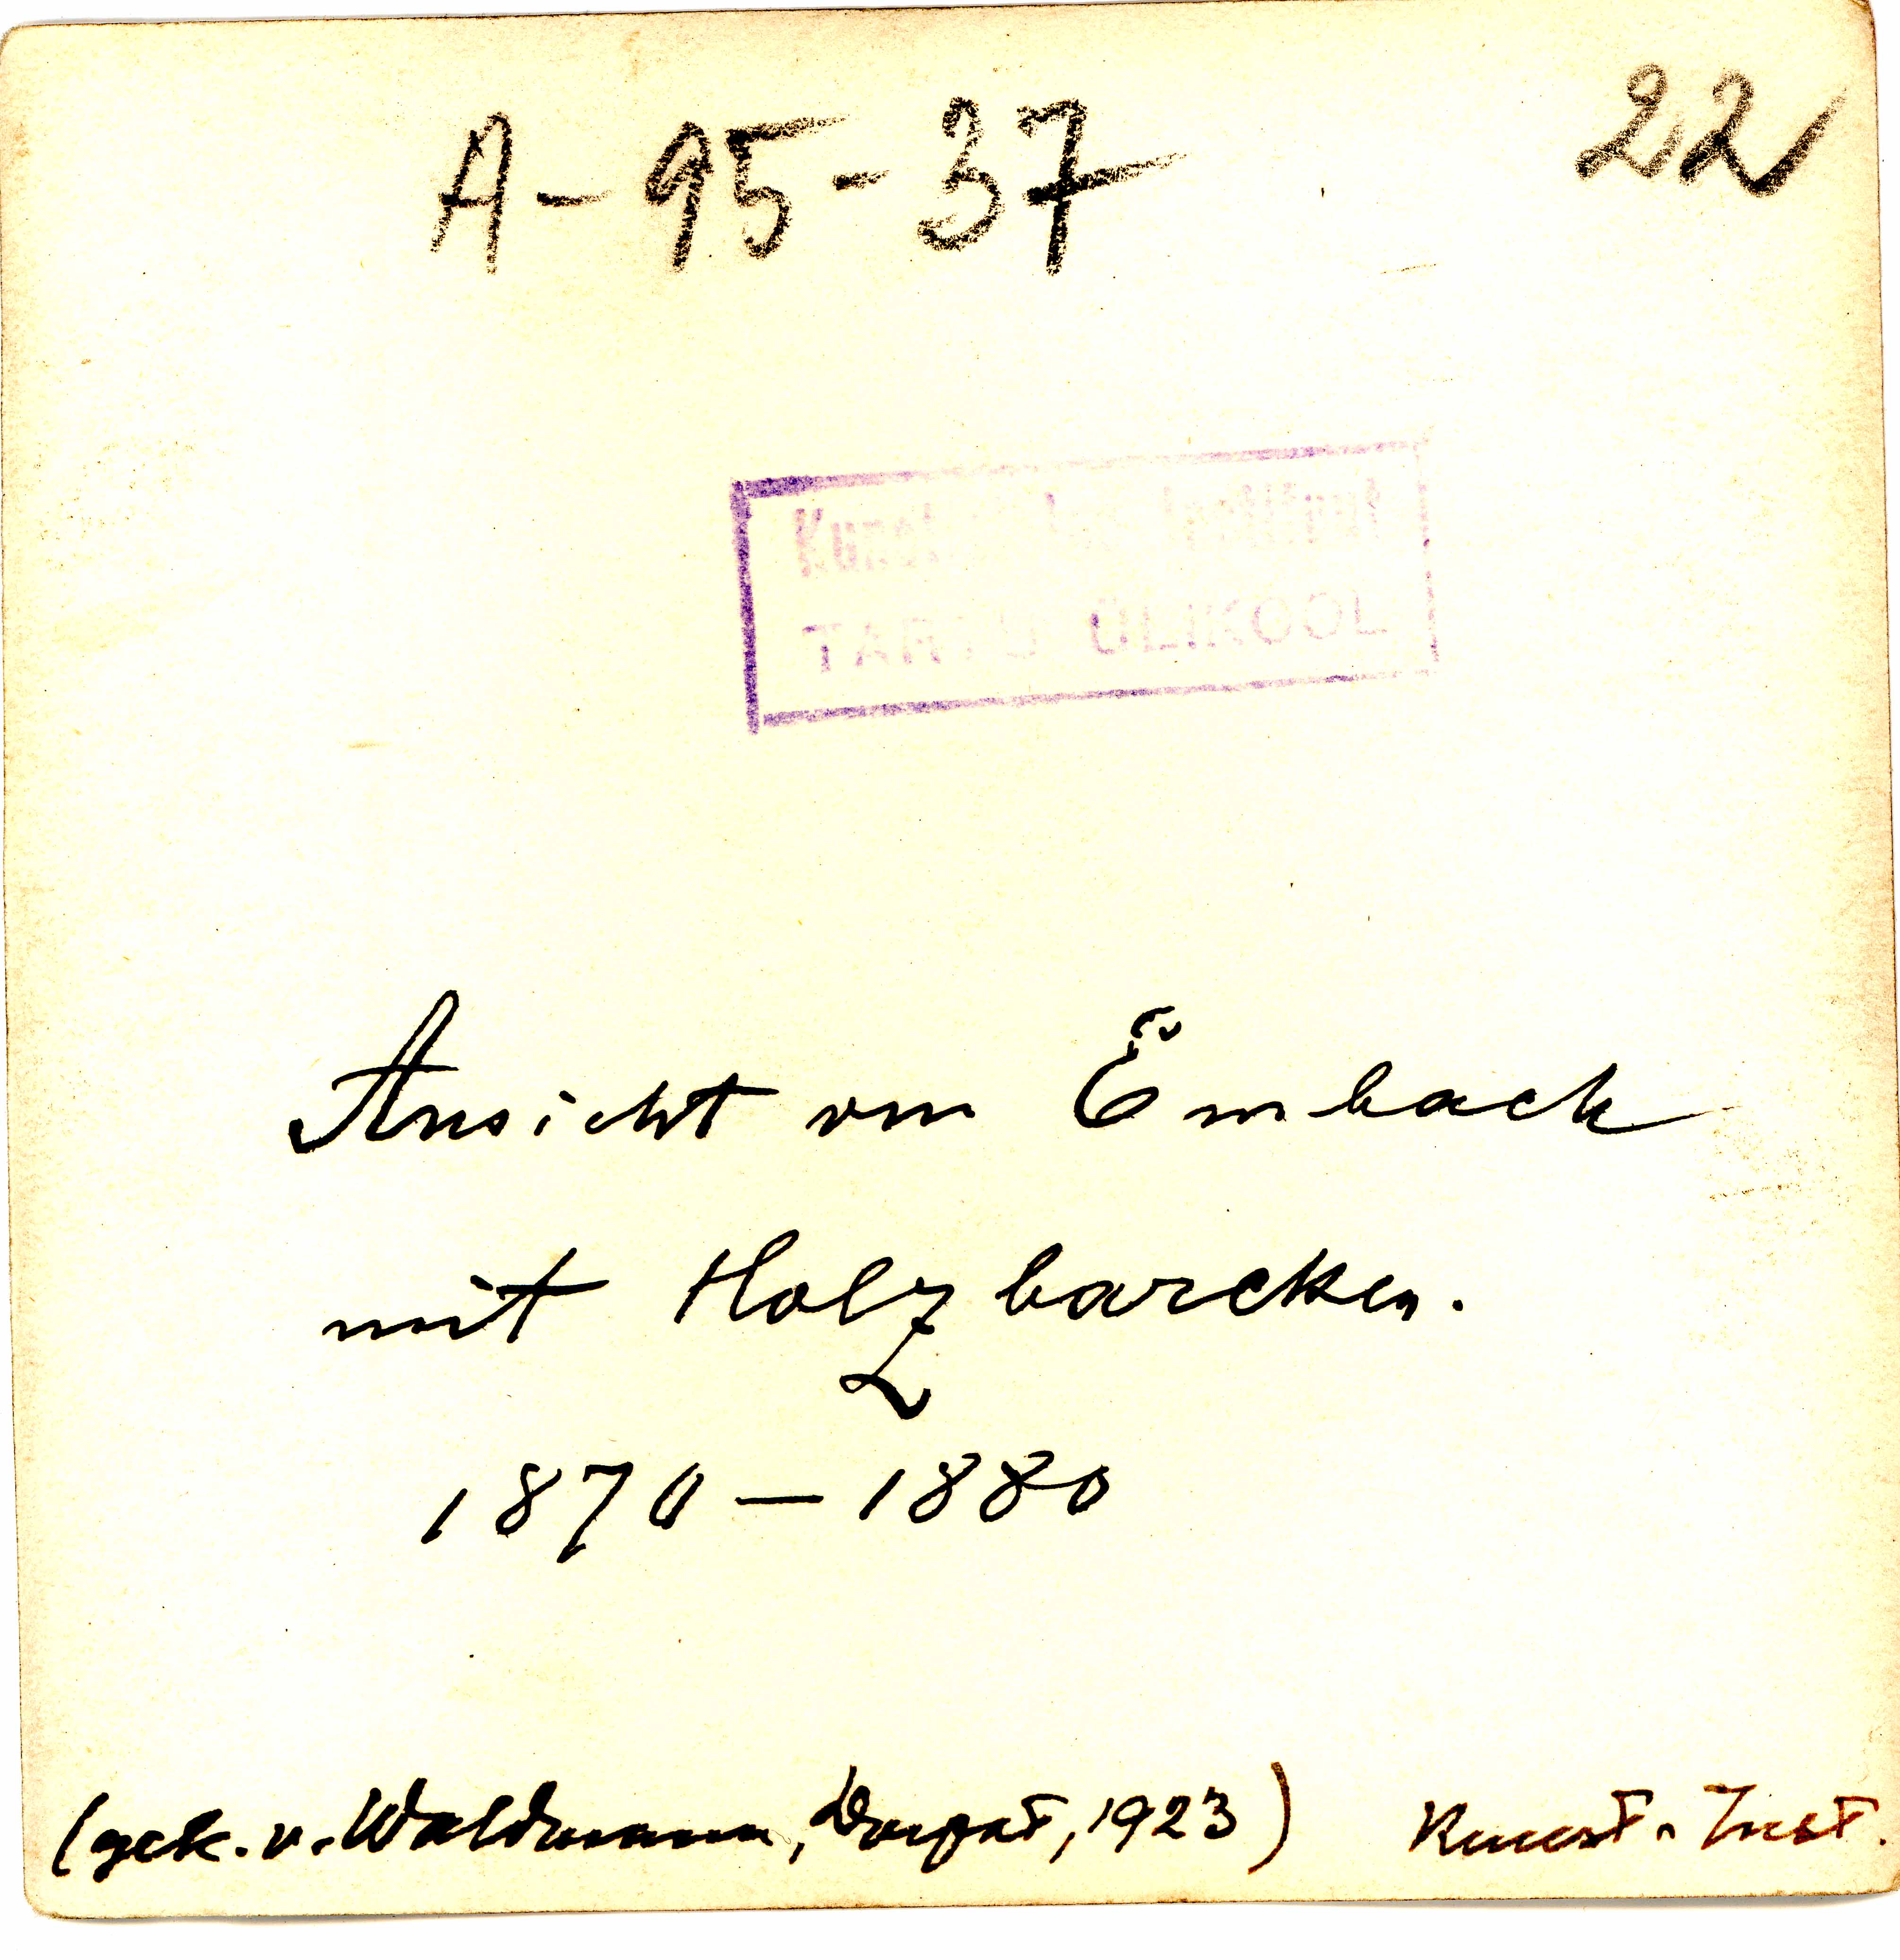 A-95-37
22
TARTU ÜLIKOOL
Ansicht vom Embach
mit Holzbarcken.
1870-1880
(gek. v. Waldmann, Dorpat, 1923) Kunst. Inst.